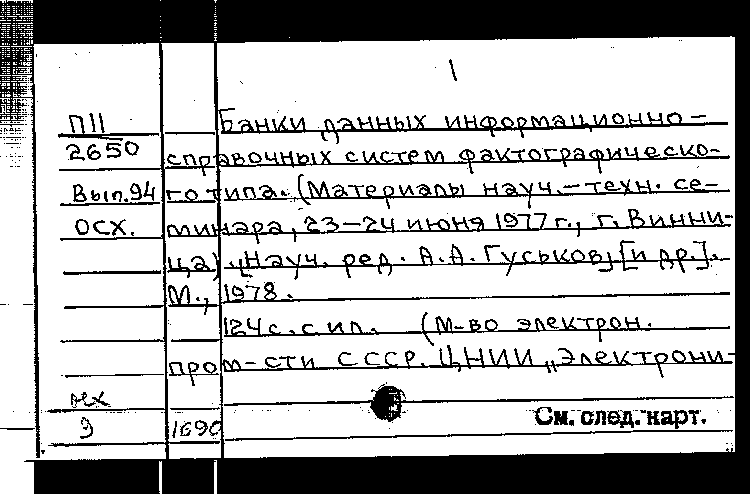 1
П11 Банки данных информационно-
2650 справочных систем фактографическо-
Вып.94 го типа. (Материалы науч.-техн. се-
осх. минара, 23-24 июня 1977 г., г. Винни-
ца). [Науч. ред. А.А. Гуськов] [и др.].
М., 1978.
124 с. с ил. (М-во электрон.
пром-сти СССР. ЦНИИ „Электрони-
нх
9 1690 См. след. карт.